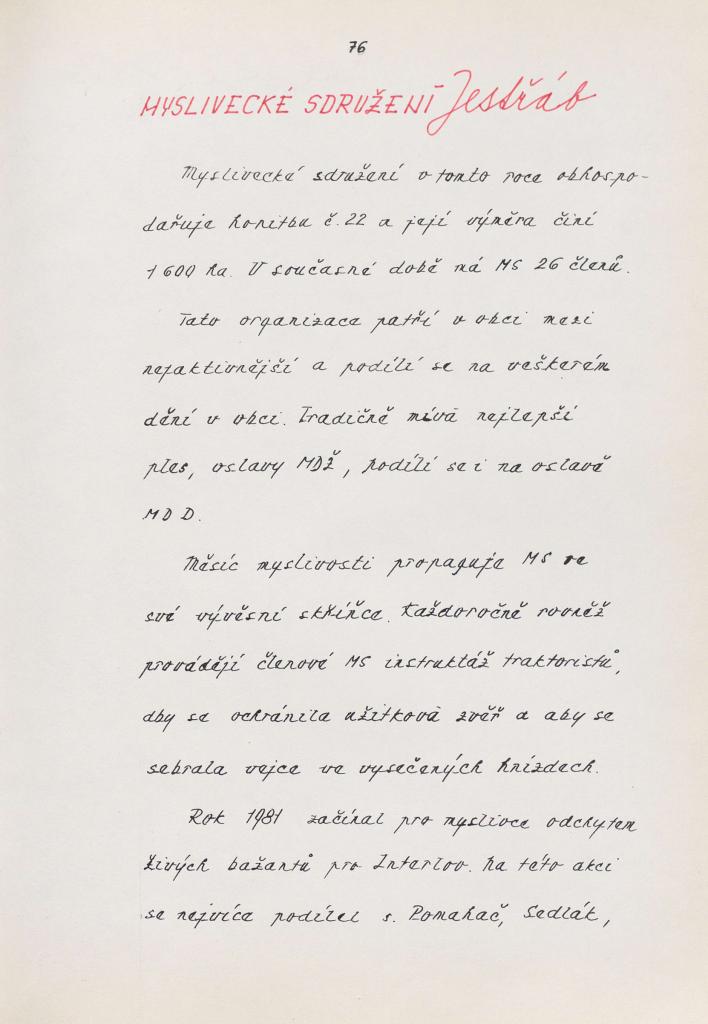 76
MYSLIVECKÉ SDRUŽENÍ Jestřáb
Myslivecké sdružení v tomto roce obhospo-
dařuje honitbu č. 22 a její výměra činí
1 600 ha. V současné době má MS 26 členů.
Tato organizace patří v obci mezi
nejaktivnější a podílí se na veškerém
dění v obci. Tradičně mívá nejlepší
ples, oslavy MDŽ, podílí se i na oslavě
MDD.
Měsíc myslivosti propaguje MS ve
své vývěsní skříňce. Každoročně rovněž
provádějí členové MS instruktáž traktoristů,
aby se ochránila užitková zvěř a aby se
sebrala vejce ve vysečených hnízdech.
Rok 1981 začínal pro myslivce odchytem
živých bažantů pro Interlov. Na této akci
se nejvíce podílel s. Pomahač, Sedlák,